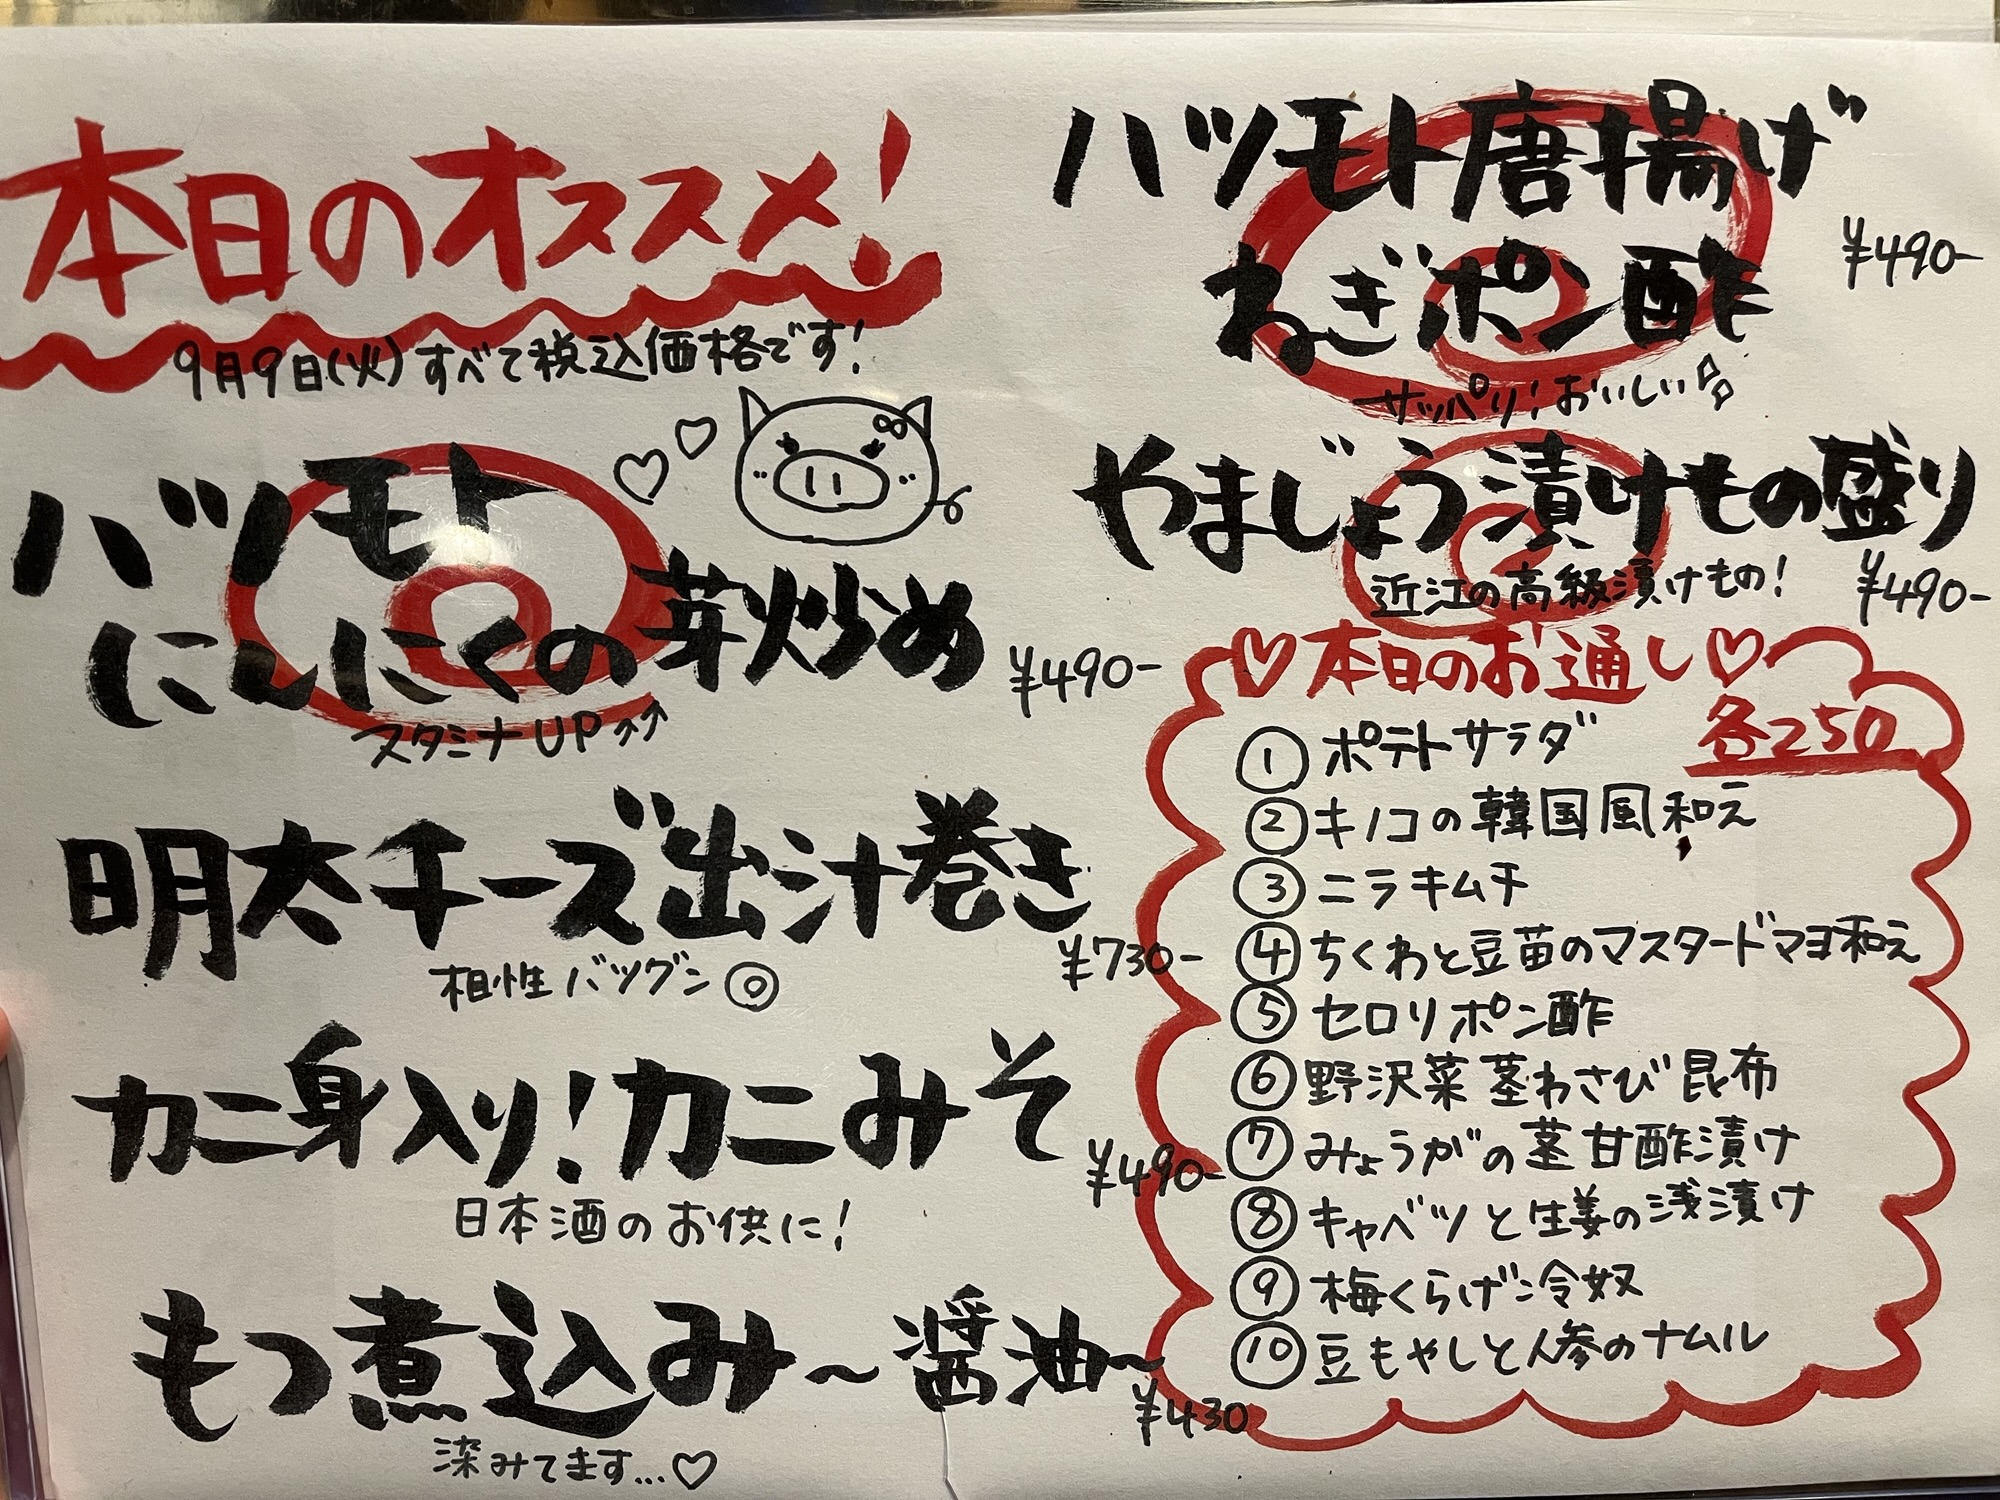 本日のオススメ!
9月9日(火)すべて税込価格です!
ハツモト
にんにくの芽炒め
¥490-
スタミナUP↑↑
明太チーズ出汁巻き
¥730-
相性バツグン◎
カニ身入り!カニみそ
¥490-
日本酒のお供に!
もつ煮込み〜醤油〜
¥430
深みてます…♡
ハツモト唐揚げ
ねぎポン酢
¥490-
サッパリ!おいしい
やまじょう漬けもの盛り
近江の高級漬けもの!
¥490-
♡本日のお通し♡
各250
①ポテトサラダ
②キノコの韓国風和え
③ニラキムチ
④ちくわと豆苗のマスタードマヨ和え
⑤セロリポン酢
⑥野沢菜茎わさび昆布
⑦みょうがの茎甘酢漬け
⑧キャベツと生姜の浅漬け
⑨梅くらげ冷奴
⑩豆もやしと人参のナムル